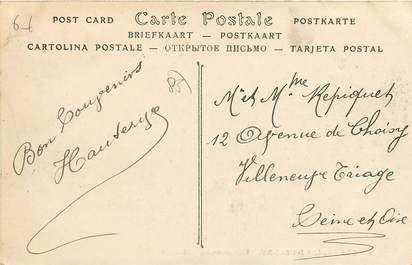 6-6
POST CARD Carte Postale POSTKARTE
BRIEFKAART — POSTKAART
CARTOLINA POSTALE — ОТКРЫТОЕ ПИСЬМО — TARJETA POSTAL
85
Bon Souvenirs
Hauterye
Mr et Mme Repiquet
12 Avenue de Choisy
Villeneuve Triage
Seine et Oise